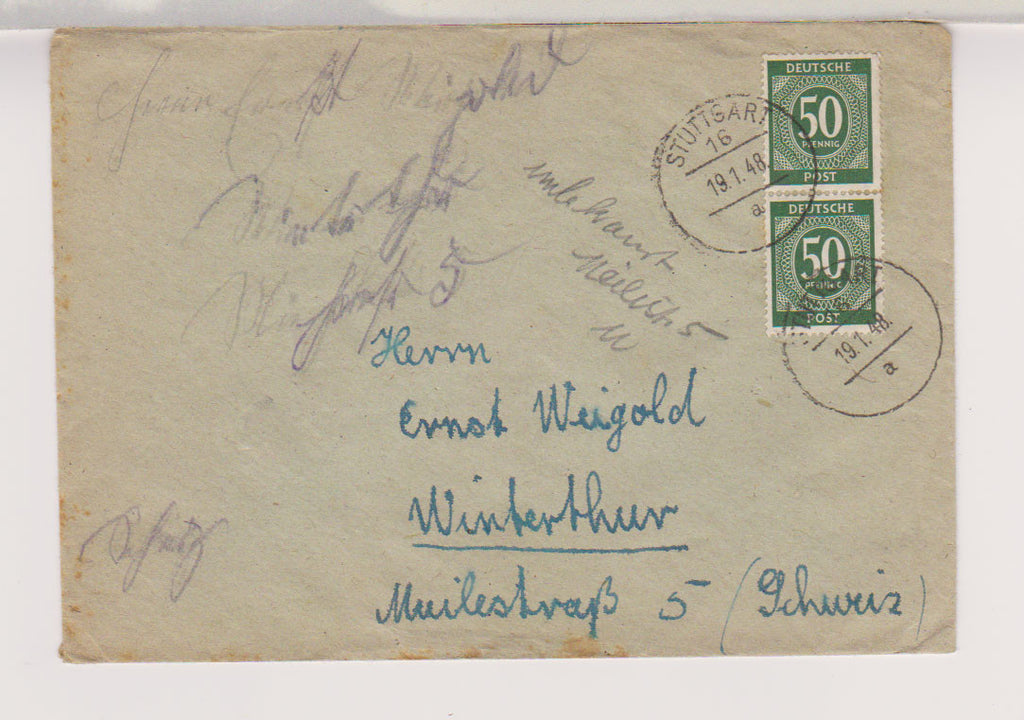 Herrn Ernst Weigold
Winterthur
5
Schweiz
unbekannt
5
DEUTSCHE
50
PFENNIG
POST
DEUTSCHE
50
PFENNIG
POST
STUTTGART
16
19.1.48.
a
19.1.48.
a
Herrn
Ernst Weigold
Winterthur
Muilestraß 5 (Schweiz)